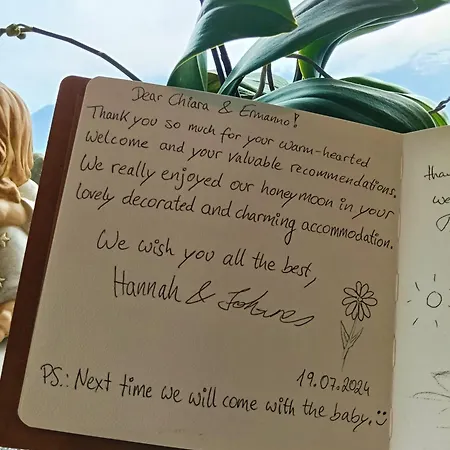 Dear Chiara & Ermanno!
Thank you so much for your warm-hearted
welcome and your valuable recommendations.
We really enjoyed our honeymoon in your
lovely decorated and charming accommodation.
We wish you all the best,
Hannah & Johannes
19.07.2024
PS.: Next time we will come with the baby.:)
than
we